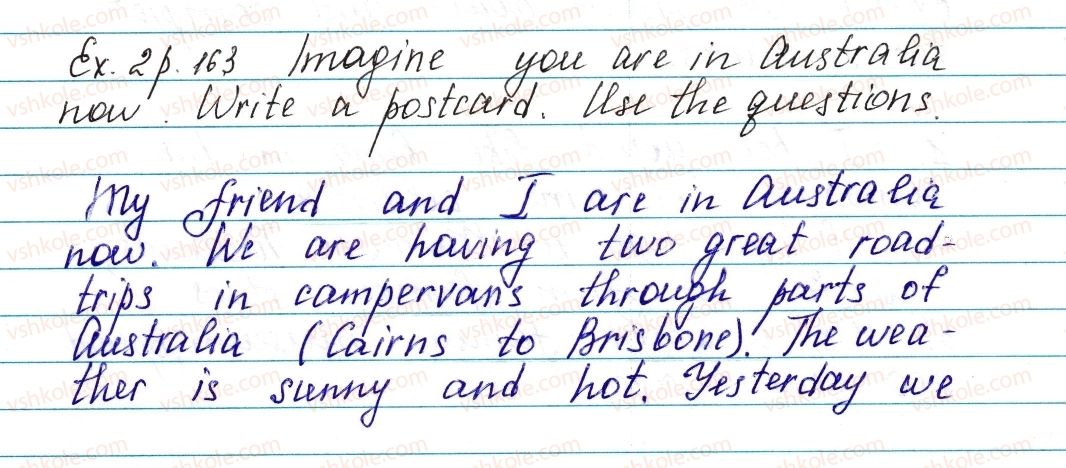 Ex. 2 p. 163 Imagine you are in Australia
now. Write a postcard. Use the questions.
My friend and I are in Australia
now. We are having two great road-
trips in campervans through parts of
Australia (Cairns to Brisbone). The wea-
ther is sunny and hot. Yesterday we